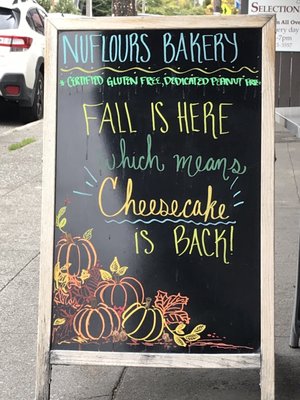 NUFLOURS BAKERY
* CERTIFIED GLUTEN FREE, DEDICATED PEANUT FREE
FALL IS HERE
which means
Cheesecake
IS BACK!
SELECTION